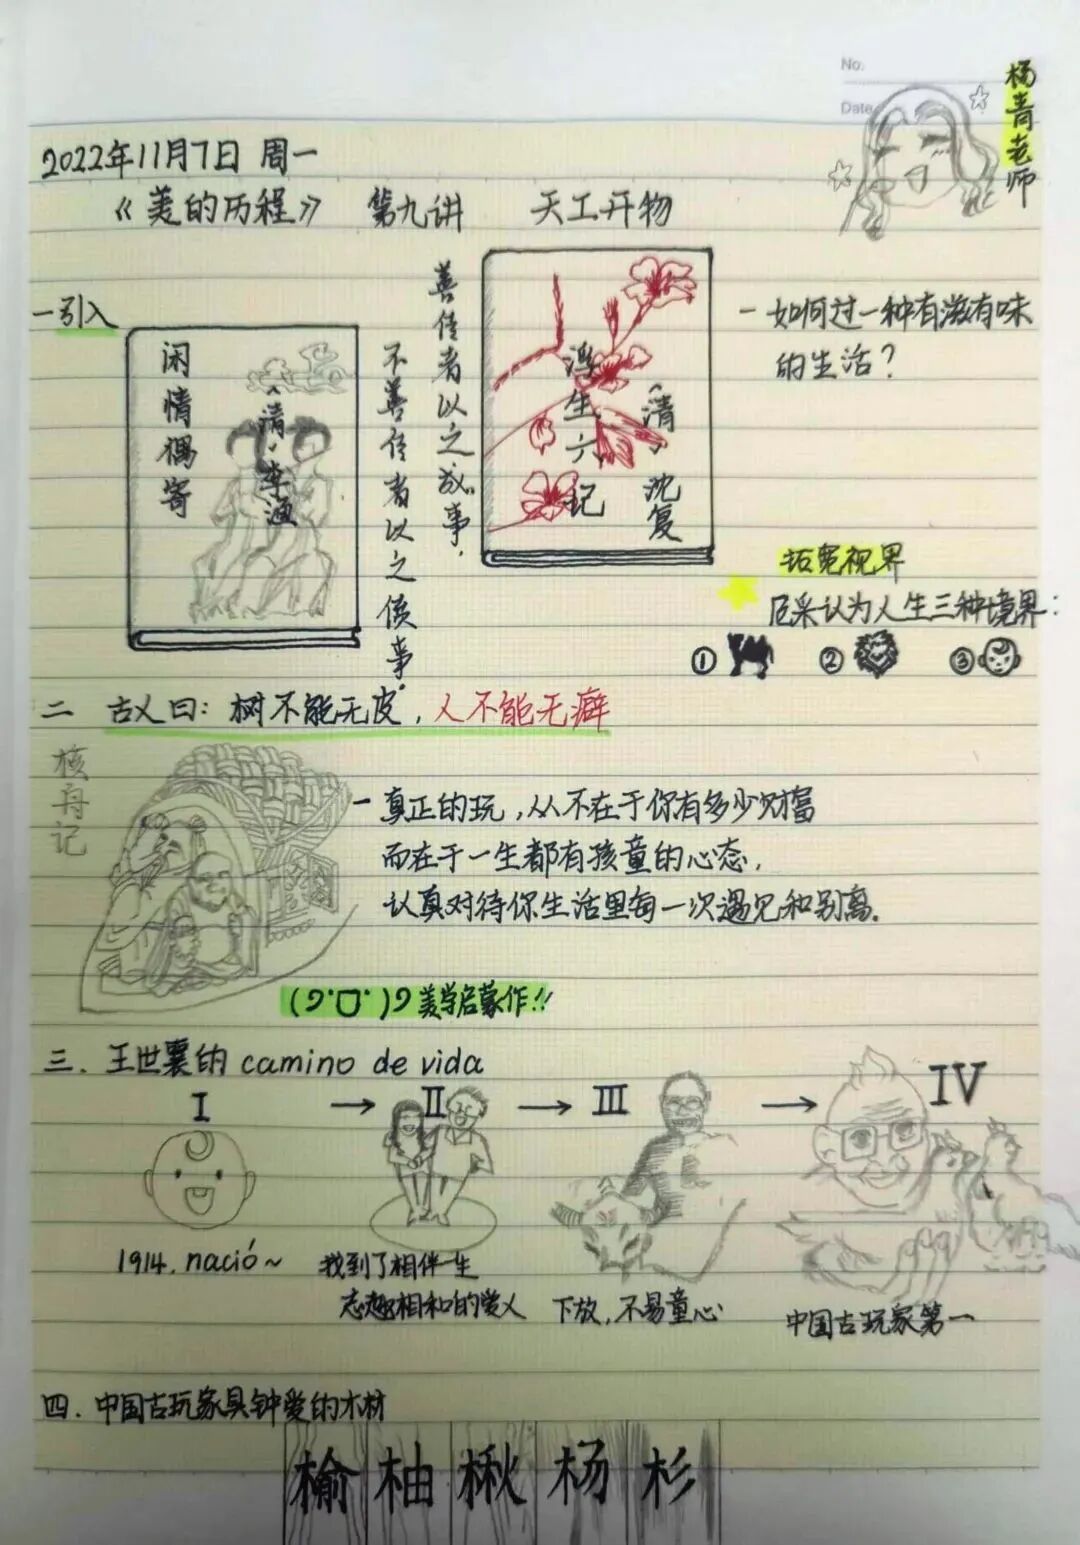 No.
Date
杨青老师
2022年11月7日 周一
《美的历程》 第九讲 天工开物
一引入
闲情偶寄
清·李渔
善侍者以之成事，
不善侍者以之偾事。
浮生六记
清·沈复
一如何过一种有滋有味
的生活？
拓宽视界
尼采认为人生三种境界：
① ② ③
二 古人曰：树不能无皮，人不能无癖
核舟记
一真正的玩，从不在于你有多少财富
而在于一生都有孩童的心态，
认真对待你生活里每一次遇见和别离。
美学启蒙作!!
三．王世襄的 camino de vida
I → II → III → IV
1914. nació~
我到了相伴一生
志趣相和的爱人
下放，不易童心
中国古玩家第一
四．中国古玩家具钟爱的木材
榆 柚 楸 杨 杉